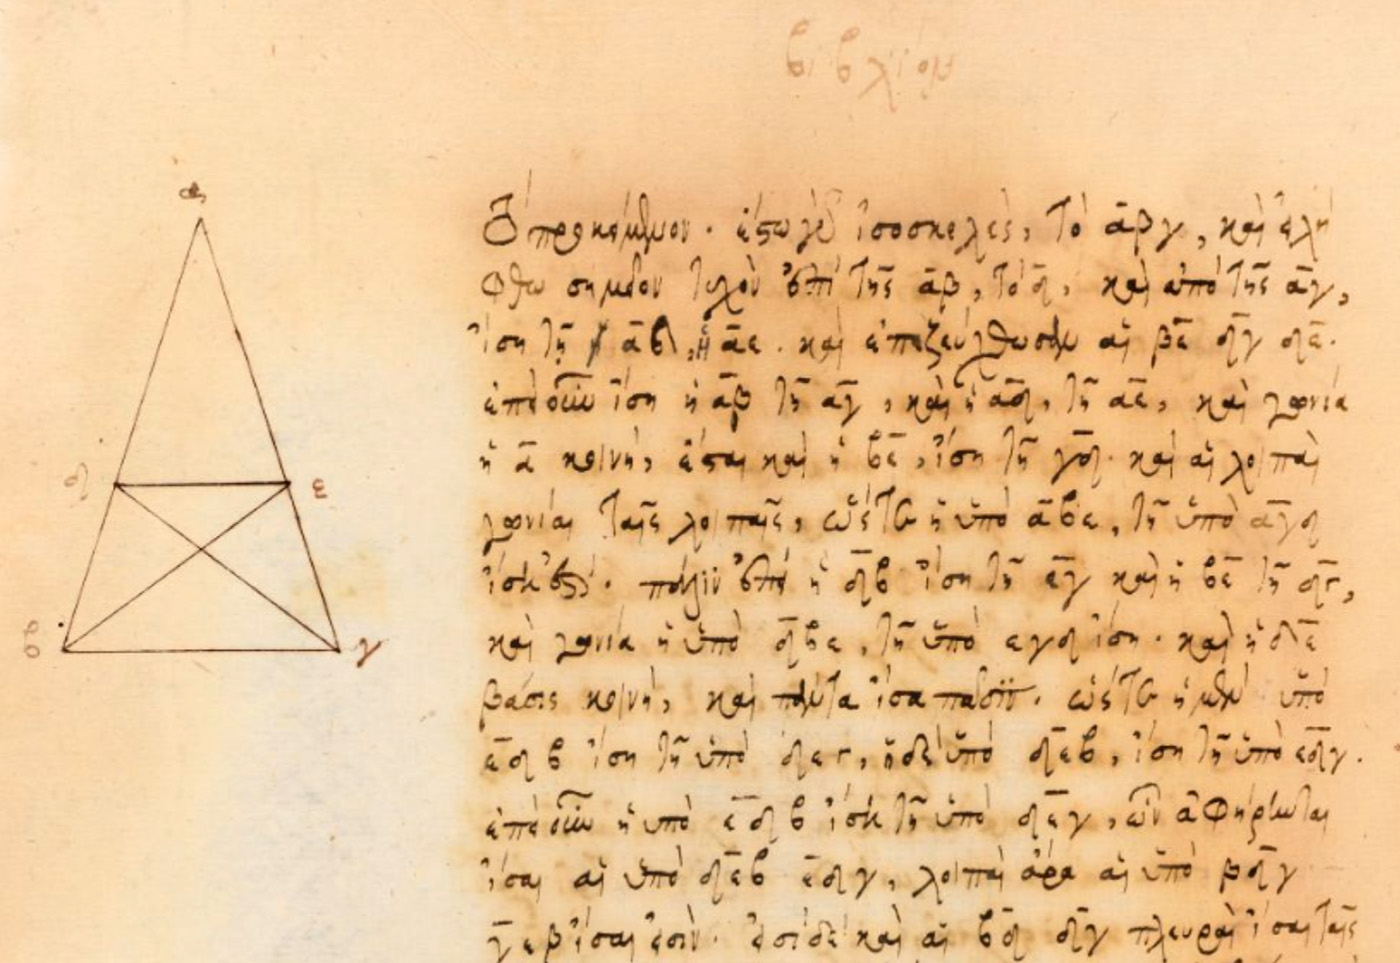 βιβλίον
α
δ
ε
β
γ
προκείμενον. ἔστω γὰρ ἰσοσκελὲς, τὸ αβγ, καὶ εἰλή
φθω σημεῖον τυχὸν ἐπὶ τῆς αβ, τὸ δ, καὶ ἀπὸ τῆς αγ,
ἴση τῇ αδ, ἡ αε. καὶ ἐπεζεύχθωσαν αἱ βε δγ δε.
ἐπεὶ οὖν ἴση ἡ αβ τῇ αγ, καὶ ἡ αδ, τῇ αε, καὶ γωνία
ἡ α κοινὴ, ἔσται καὶ ἡ βε, ἴση τῇ γδ. καὶ αἱ λοιπαὶ
γωνίαι ταῖς λοιπαῖς, ὥστε ἡ ὑπὸ αβε, τῇ ὑπὸ αγδ
ἴση ἐστί. πάλιν ἐπεὶ ἡ δβ ἴση τῇ εγ καὶ ἡ βε τῇ δγ,
καὶ γωνία ἡ ὑπὸ δβε, τῇ ὑπὸ εγδ ἴση. καὶ ἡ δε
βάσις κοινὴ, καὶ πάντα ἴσα πᾶσιν. ὥστε ἡ μὲν ὑπὸ
εδβ ἴση τῇ ὑπὸ δεγ, ἡ δὲ ὑπὸ δεβ, ἴση τῇ ὑπὸ εδγ.
ἐπεὶ οὖν ἡ ὑπὸ εδβ ἴση τῇ ὑπὸ δεγ, ὧν ἀφῄρηνται
ἴσαι αἱ ὑπὸ δεβ εδγ, λοιπαὶ ἄρα αἱ ὑπὸ βδγ
γεβ ἴσαι εἰσίν. εἰσὶ δὲ καὶ αἱ βδ δγ πλευραὶ ἴσαι ταῖς